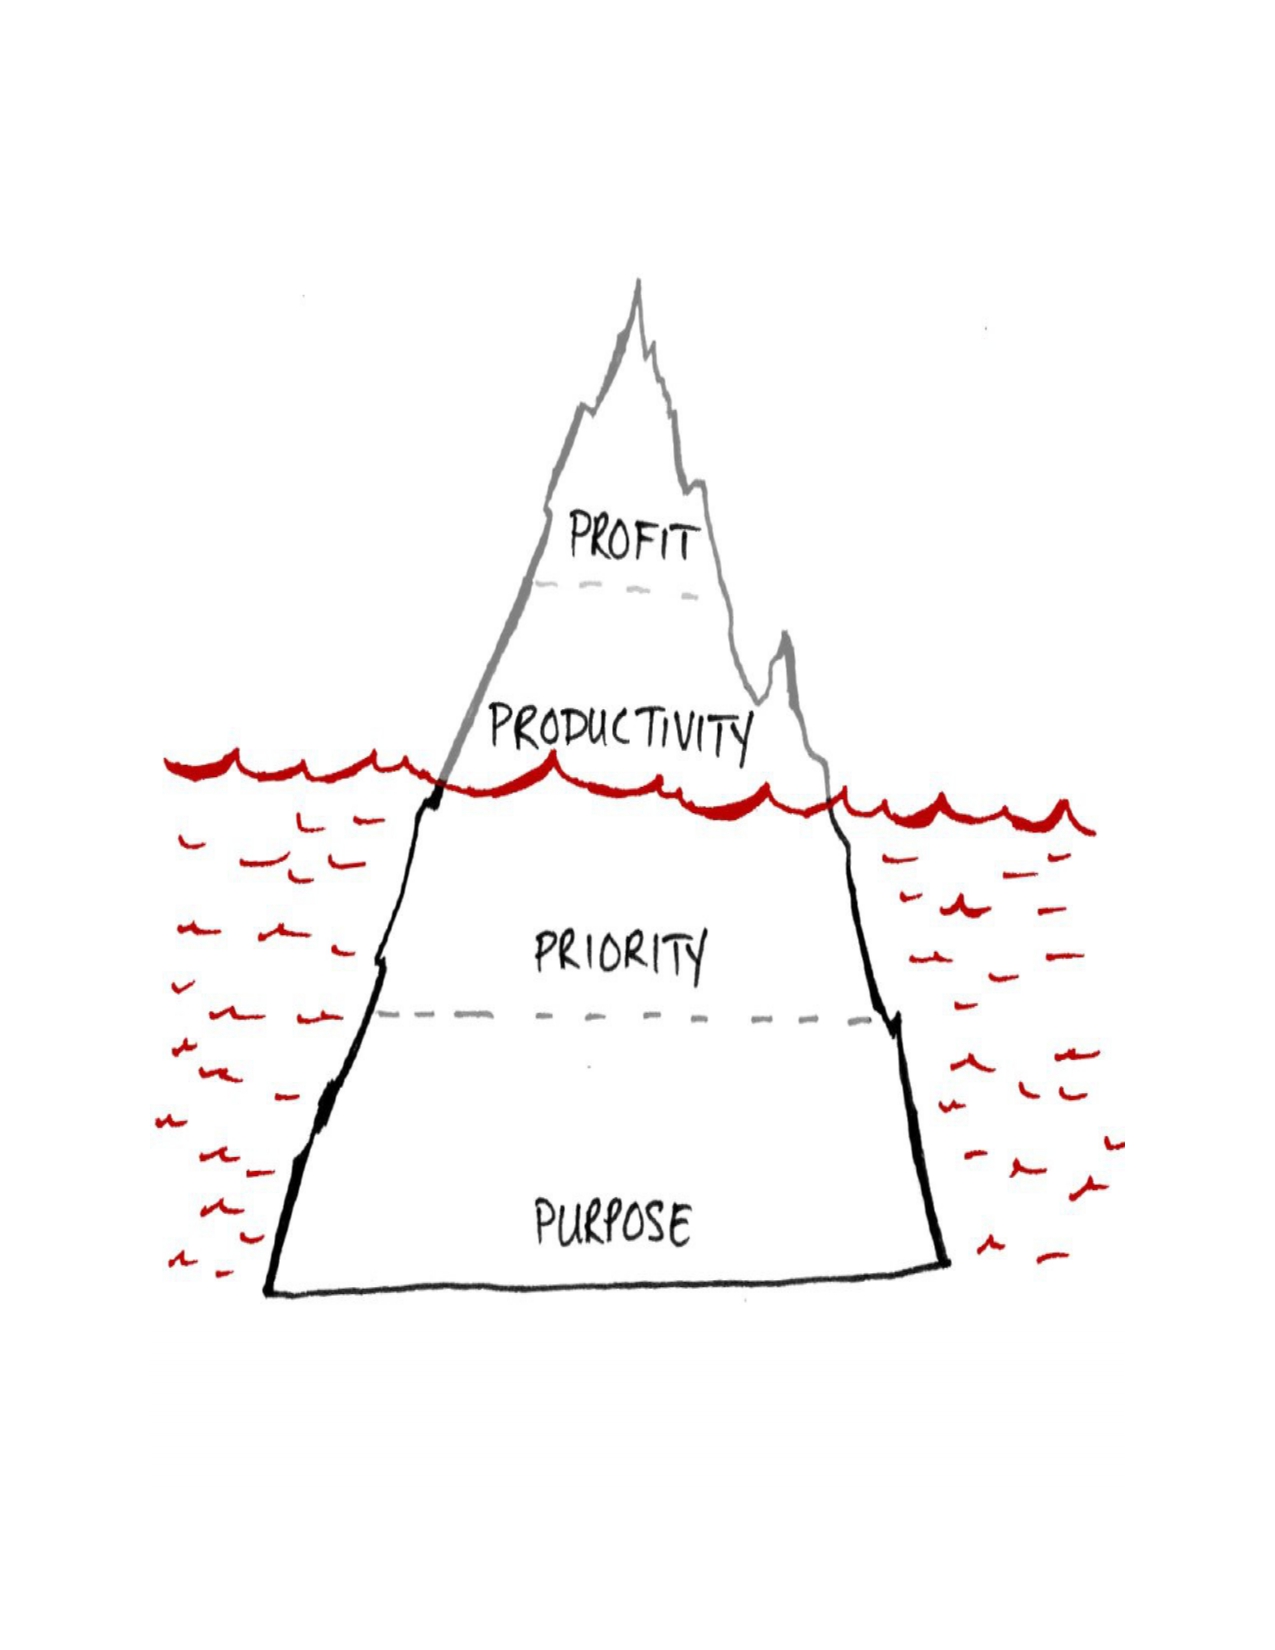 PROFIT
PRODUCTIVITY
PRIORITY
PURPOSE